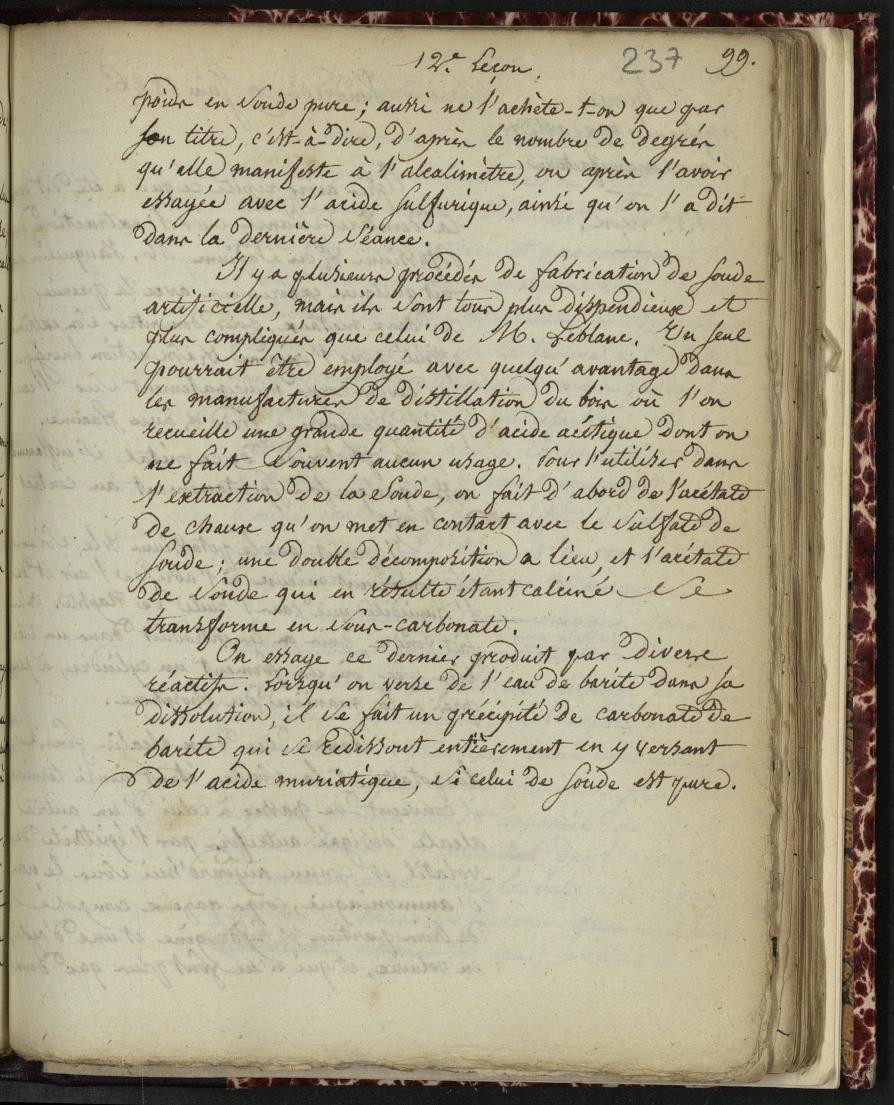 12e. Leçon. 237 99.
poids en soude pure; aussi ne l'achète-t-on que par
son titre, c'est-à-dire, d'après le nombre de degrés
qu'elle manifeste à l'alcalimètre, ou après l'avoir
essayée avec l'acide sulfurique, ainsi qu'on l'a dit
dans la dernière séance.
Il y a plusieurs procédés de fabrication de soude
artificielle, mais ils sont tous plus dispendieux et
plus compliqués que celui de M. Leblanc. Un seul
pourrait être employé avec quelqu'avantage dans
les manufactures de distillation du bois où l'on
recueille une grande quantité d'acide acétique dont on
ne fait souvent aucun usage. Pour l'utiliser dans
l'extraction de la soude, on fait d'abord de l'acétate
de chaux qu'on met en contact avec le sulfate de
soude; une double décomposition a lieu, et l'acétate
de soude qui en résulte étant calciné se
transforme en sous-carbonate.
On essaye ce dernier produit par divers
réactifs. Lorsqu'on verse de l'eau de barite dans sa
dissolution, il se fait un précipité de carbonate de
barite qui se redissout entièrement en y versant
de l'acide muriatique, si celui de soude est pure.